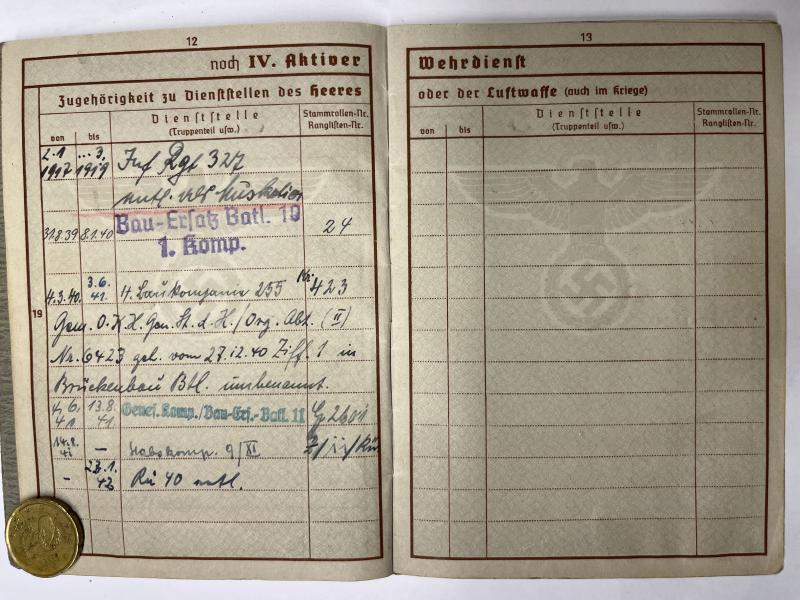 12
noch IV. Aktiver
Zugehörigkeit zu Dienststellen des Heeres
von bis
Dienststelle
(Truppenteil usw.)
Stammrollen-Nr.
Ranglisten-Nr.
2.1 ... 3.
1917 1919 Inf Rgt 327
entl. als Musketier
Bau-Ersatz Batl. 10
31.8.39 8.1.40 24
1. Komp.
4.3.40. 3.6.41. 4. Baukompanie 255 Nr. 423
19
Gem. O.K.H. Gen. St. d. H./Org. Abt. (II)
Nr. 6423 geh. vom 27.12.40 Ziff. 1 in
Brückenbau Btl. umbenannt.
4.6.41 13.8.41 Genes. Komp./Bau-Ers.-Batl. 11
14.8.41 –
– 23.1.42 Rü 40 entl.
13
Wehrdienst
oder der Luftwaffe (auch im Kriege)
von bis
Dienststelle
(Truppenteil usw.)
Stammrollen-Nr.
Ranglisten-Nr.